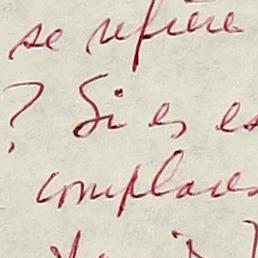 se refiere
? Si es es
complaces